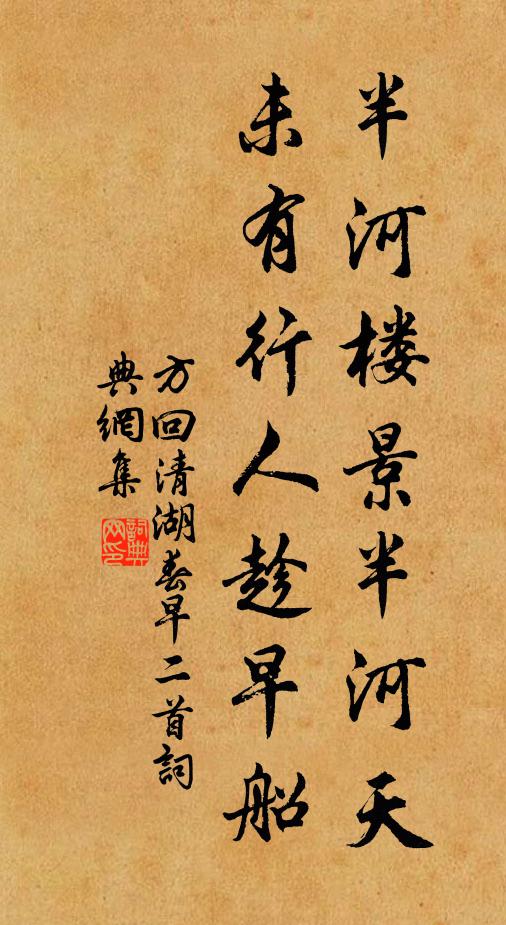 半河楼景半河天
未有行人趁早船
方回清湖春早二首詞
典網集
詞典网印